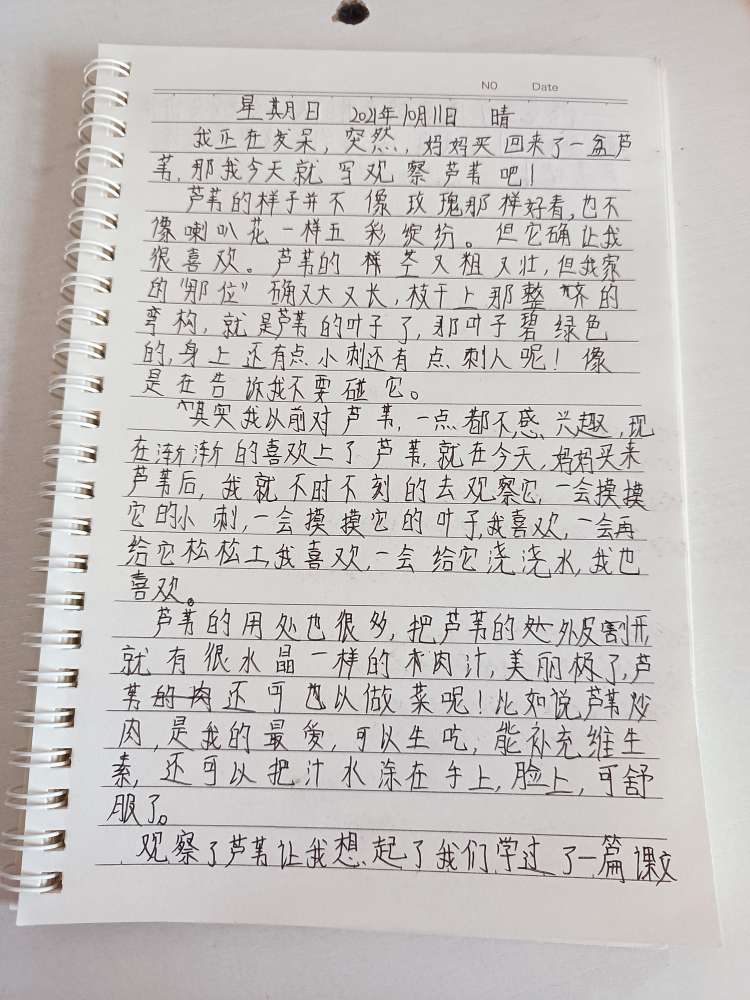 NO Date
星期日 2021年10月11日 晴
我正在发呆,突然,妈妈买回来了一盆芦
苇,那我今天就写观察芦苇吧!
芦苇的样子并不像玫瑰那样好看,也不
像喇叭花一样五彩缤纷。但它确让我
很喜欢。芦苇的样茎又粗又壮,但我家
的“那位”确又大又长,枝干上那整齐的
弯构,就是芦苇的叶子了,那叶子碧绿色
的,身上还有点小刺还有点刺人呢!像
是在告诉我不要碰它。
其实我以前对芦苇,一点都不感兴趣,现
在渐渐的喜欢上了芦苇,就在今天,妈妈买来
芦苇后,我就不时不刻的去观察它,一会摸摸
它的小刺,一会摸摸它的叶子,我喜欢,一会再
给它松松土,我喜欢,一会给它浇浇水,我也
喜欢。
芦苇的用处也很多,把芦苇的处外皮割开,
就有很水晶一样的肉汁,美丽极了,芦
苇的肉还可也以做菜呢!比如说芦苇炒
肉,是我的最爱,可以生吃,能补充维生
素,还可以把汁水涂在手上,脸上,可舒
服了。
观察了芦苇让我想起了我们学过了一篇课文